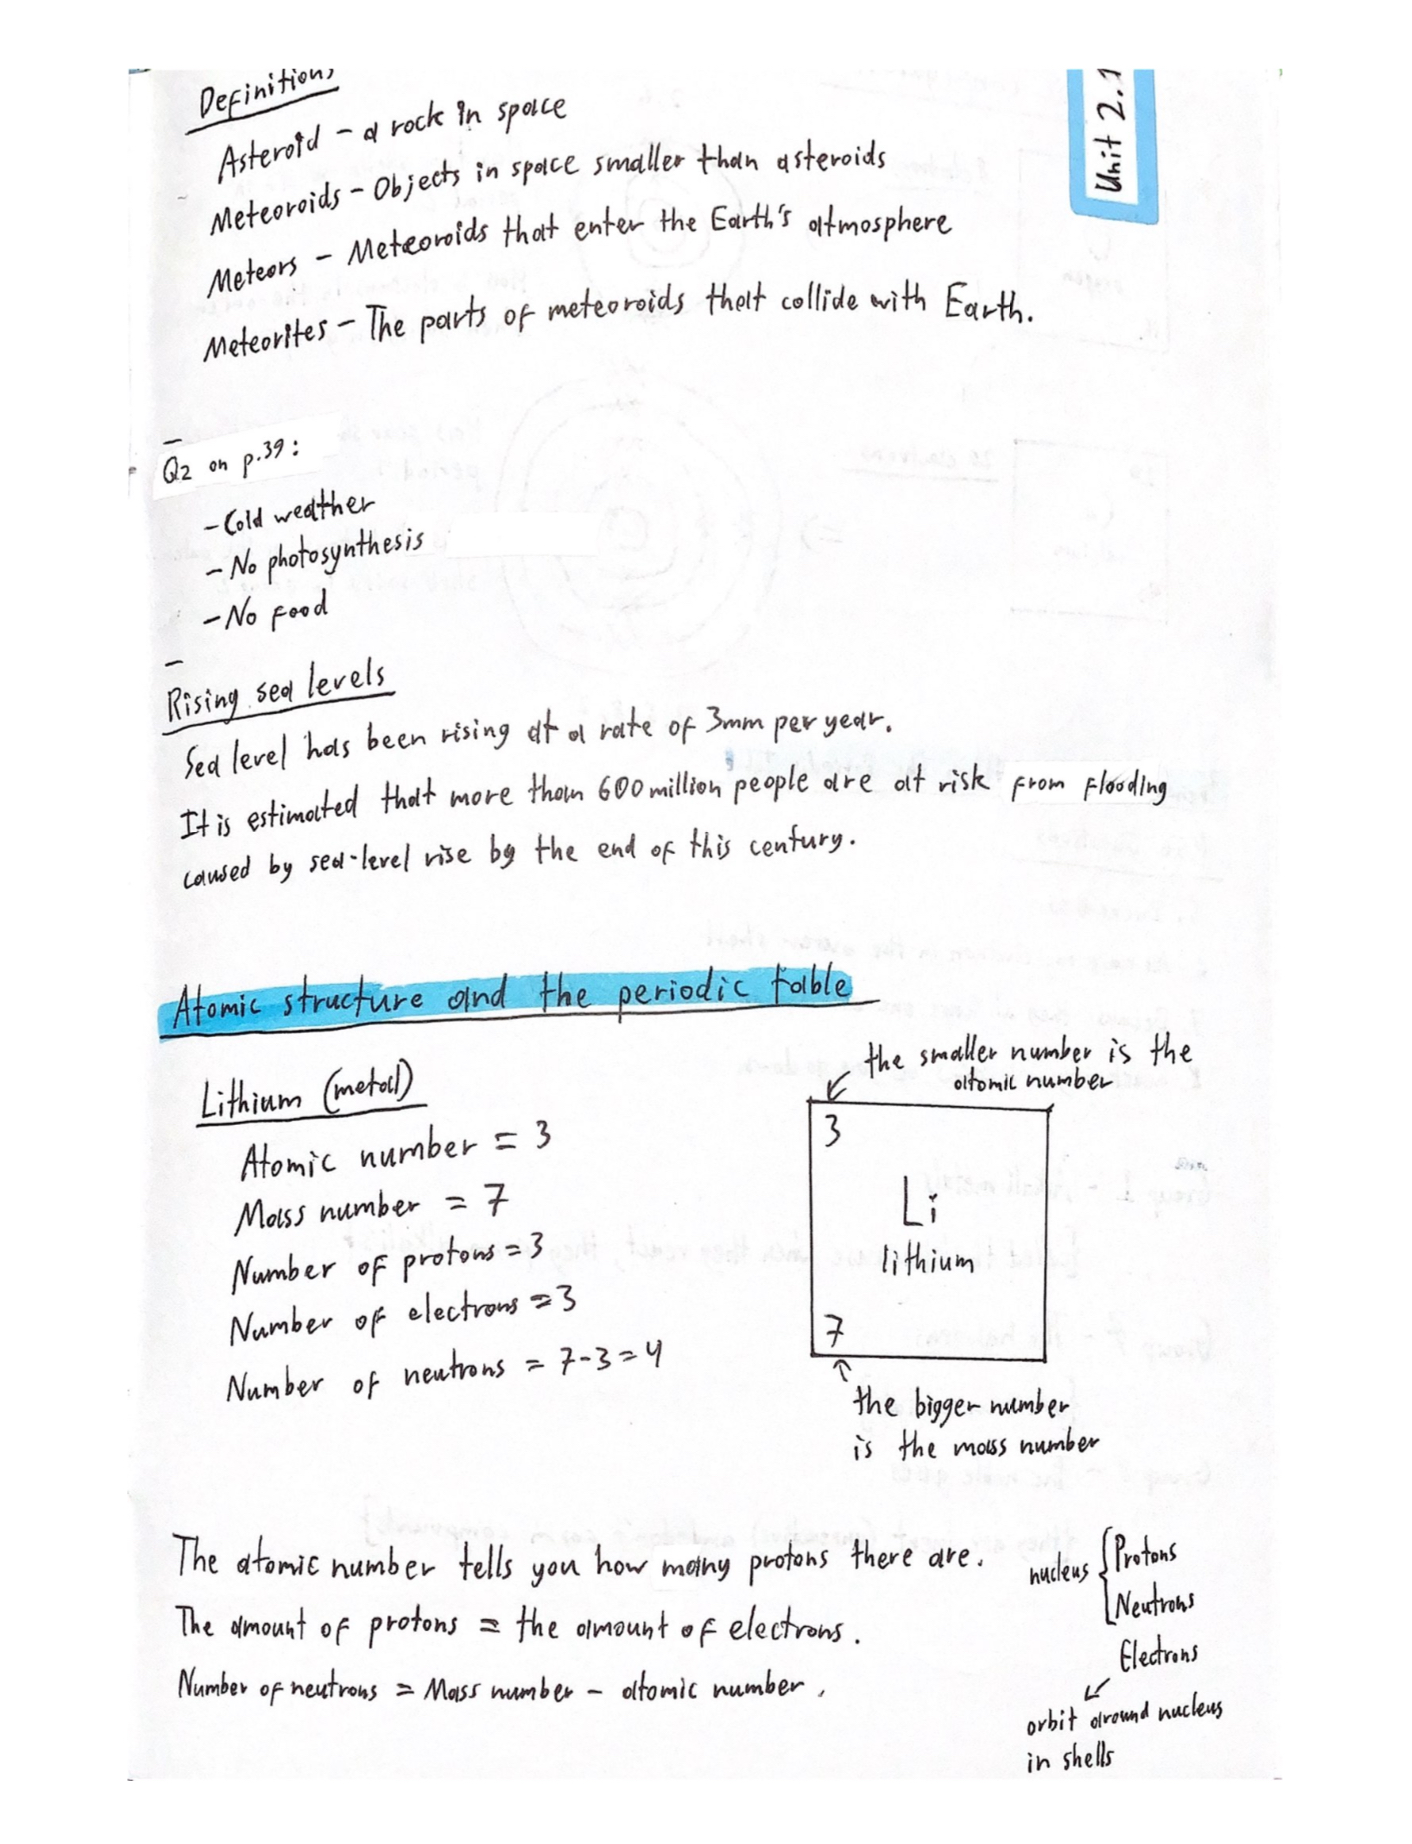 Definitions
Unit 2.1
Asteroid - a rock in space
Meteoroids - Objects in space smaller than asteroids
Meteors - Meteoroids that enter the Earth's atmosphere
Meteorites - The parts of meteoroids that collide with Earth.
Q2 on p.39:
- Cold weather
- No photosynthesis
- No food
Rising sea levels
Sea level has been rising at a rate of 3mm per year.
It is estimated that more than 600 million people are at risk from flooding
caused by sea-level rise by the end of this century.
Atomic structure and the periodic table
Lithium (metal)
Atomic number = 3
Mass number = 7
Number of protons = 3
Number of electrons = 3
Number of neutrons = 7-3=4
the smaller number is the
atomic number
3
Li
lithium
7
the bigger number
is the mass number
The atomic number tells you how many protons there are.
The amount of protons = the amount of electrons.
Number of neutrons = Mass number - atomic number.
nucleus { Protons
Neutrons
Electrons
orbit around nucleus
in shells